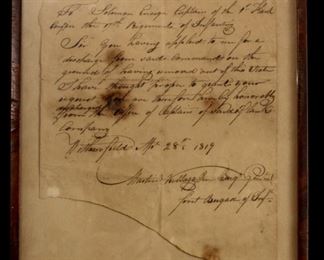 To Solomon Ensign Captain of the 1st Flank
Company the 17th Regiment of Infantry
Sir You having applied to me for a
discharge from said command on the
ground of having removed out of this State
I have thought proper to grant your
request You are therefore hereby honorably
discharged from the office of Captain of said Flank
Company
Wethersfield 28th 1819
Martin Kellogg
first Brigade of Inf